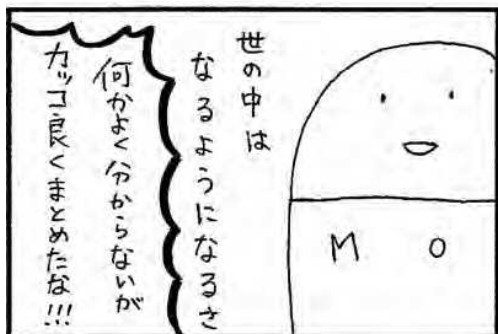 世の中は
なるようになるさ
何かよく分からないが
カッコ良くまとめたな!!!
M O